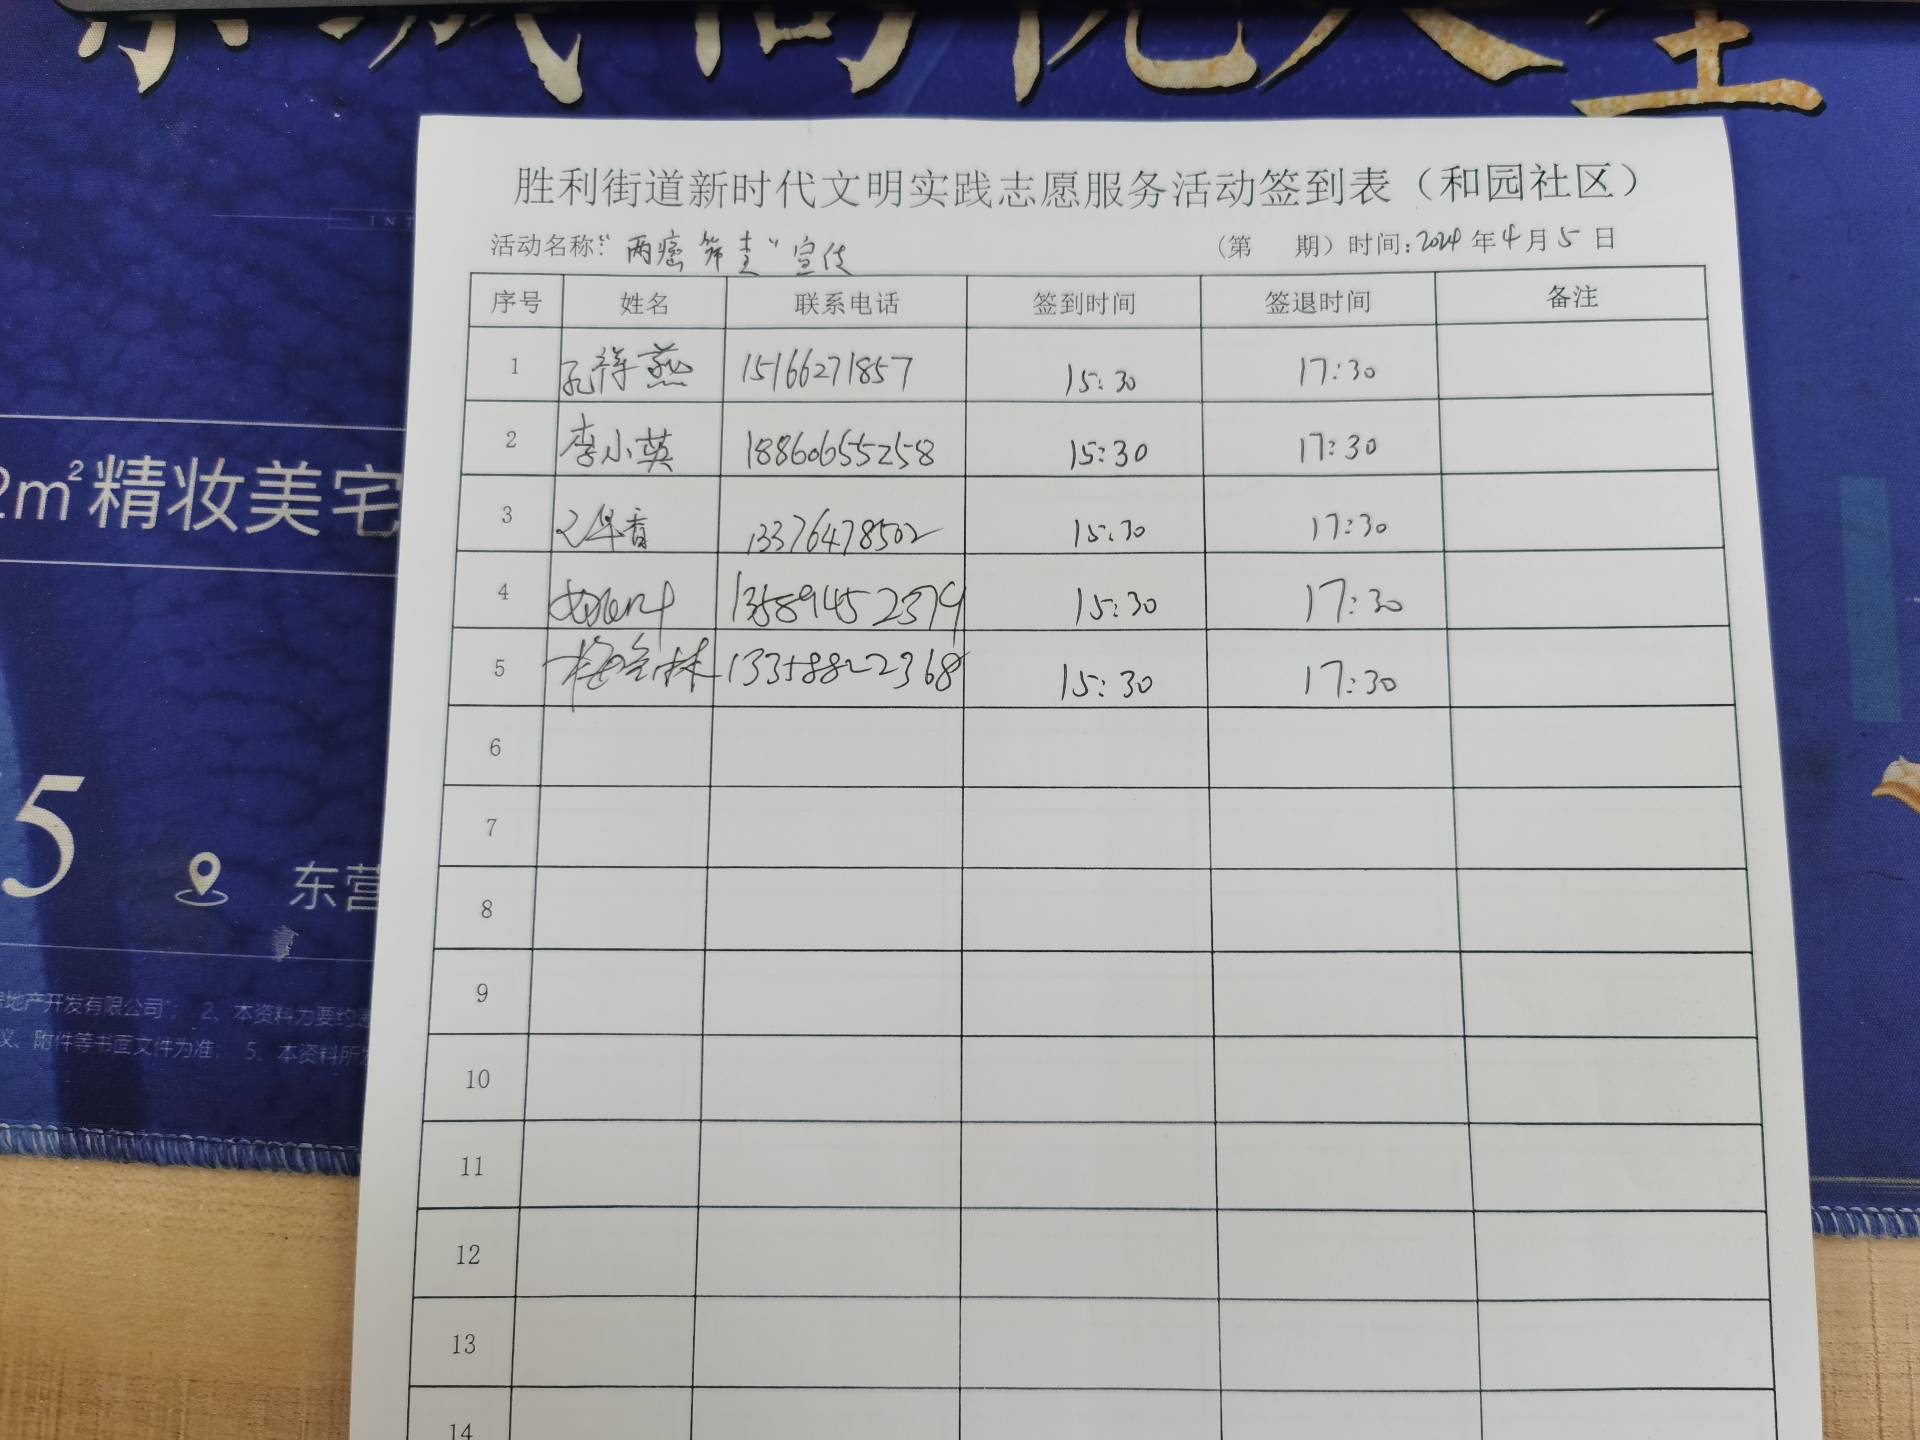 INT
2m²精妆美宅
5
东营
房地产开发有限公司"； 2、本资料为要约邀
议、附件等书面文件为准； 5、本资料所
胜利街道新时代文明实践志愿服务活动签到表（和园社区）
活动名称："两癌筛查"宣传 （第 期）时间：2024年4月5日
序号 姓名 联系电话 签到时间 签退时间 备注
1 15166271857 15:30 17:30
2 李小英 18860655258 15:30 17:30
3 13376478502 15:30 17:30
4 13589452379 15:30 17:30
5 13358822368 15:30 17:30
6
7
8
9
10
11
12
13
14